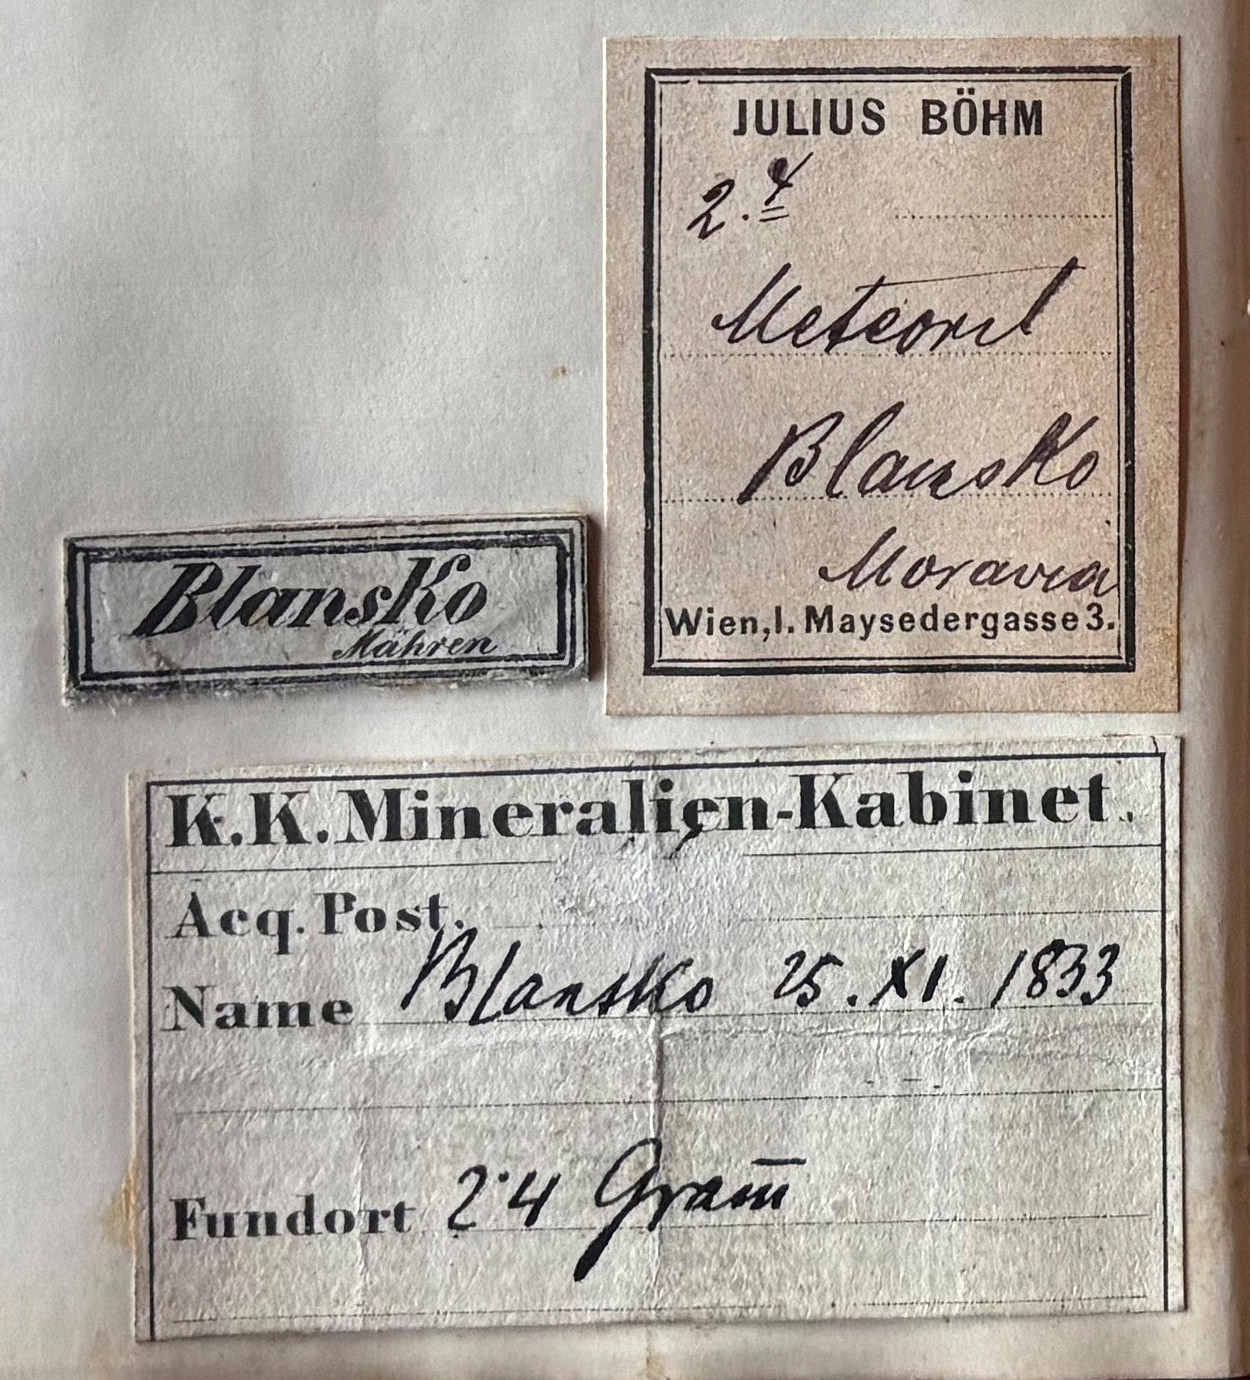 JULIUS BÖHM
2.4
Meteorit
Blansko
Moravia
Wien, I. Maysedergasse 3.
Blansko
Mähren
K.K. Mineralien-Kabinet.
Acq. Post.
Name Blansko 25. XI. 1833
Fundort 2·4 Gram̅